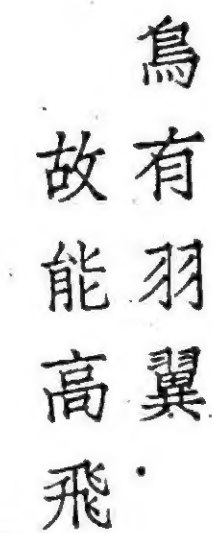 鳥有羽翼·
故能高飛